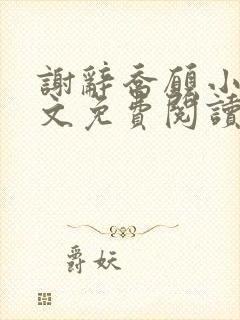 謝辭喬願小
文免費閱讀
爵妖